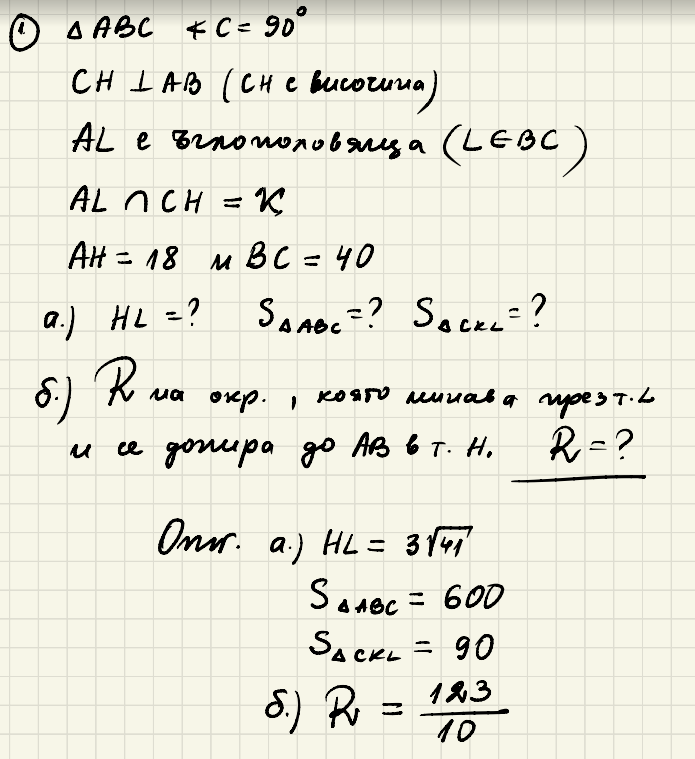 ① △ABC ∢C = 90°
CH ⊥ AB (CH е височина)
AL е ъглополовяща (L∈BC)
AL ∩ CH = K
AH = 18 и BC = 40
а.) HL = ? S△ABC = ? S△CKL = ?
б.) R на окр., която минава през т. L
и се допира до AB в т. H. R = ?
Отг. а.) HL = 3√41
S△ABC = 600
S△CKL = 90
б.) R = 123/10